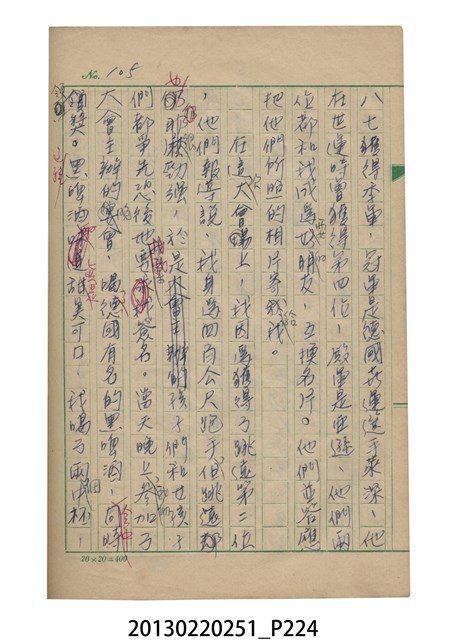 No. 105
八七獲得季軍,冠軍是德國奇運選手東深,他
在世運時曾獲得第四位,殿軍是亜遜、他們兩
位都和我成為好朋友,互換名片。他們並答應
把他們所照的相片寄給我。
在這大會場上,我因為獲得了跳遠第二位
,他們報導說,我身為四百公尺跑手但跳遠
那麼勁強,於是男孩子們和女孩子
們都爭先恐後地要我簽名。當天晚上參加了
大會主辦的晚會,喝德國有名的黑啤酒,同時
領獎。黑啤酒甜美可口,我喝了兩杯,
20×20=400
20130220251_P224